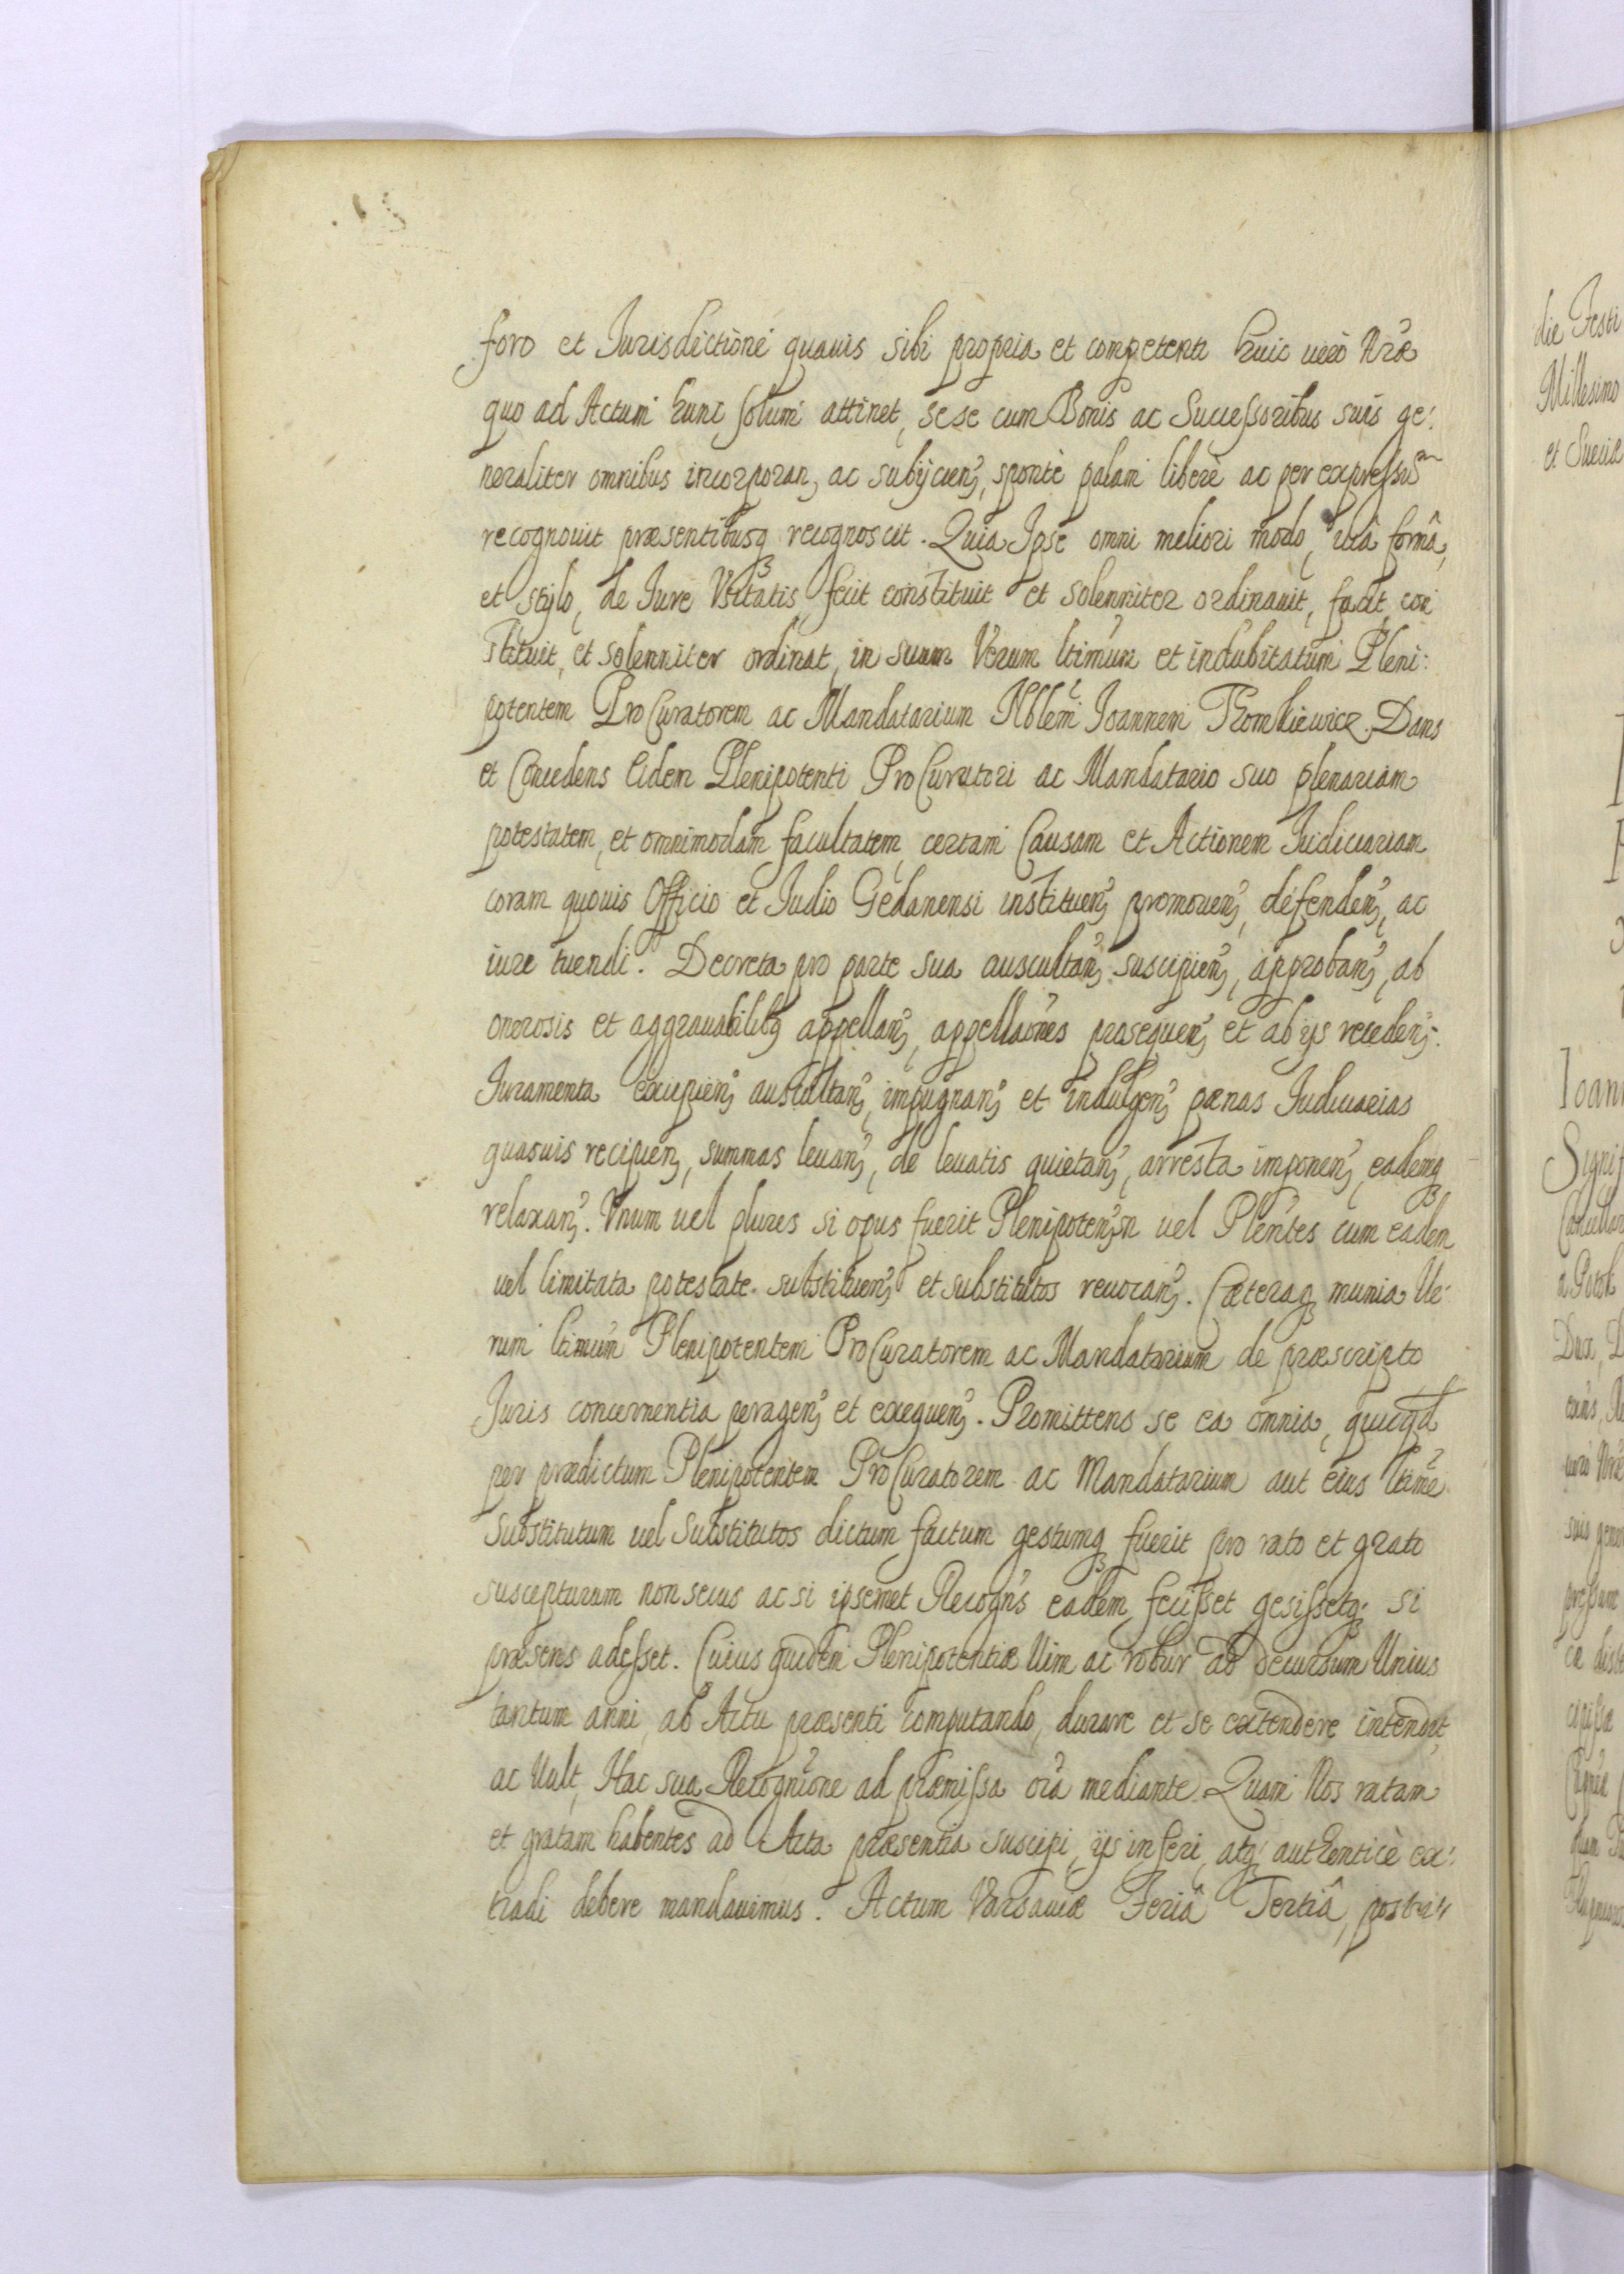 foro et Jurisdictioni quavis sibi propria et competenti huic uerò Nræ
quo ad Actum hunc solum attinet, sese cum Bonis ac Successoribus suis ge:
neraliter omnibus incorporan, ac subijcien, spontè palam liberè ac per expressũ
recognouit præsentibusq recognoscit. Quia Ipse omni meliori modo, uiâ formâ,
et stylo, de Jure Vsitatis, fecit constituit et solenniter ordinauit, facit, con
stituit, et solenniter ordinat, in suum Verum ltimum et indubitatum Pleni:
potentem ProCuratorem ac Mandatarium Nblem Joannem Tromkiewicz. Dans
et Concedens Eidem Plenipotenti ProCuratori ac Mandatario suo plenariam
potestatem, et omnimodam facultatem, certam Causam et Actionem Judiciariam
coram quouis Officio et Judio Gedanensi instituen, promouen, defenden, ac
iure tuendi. Decreta pro parte sua auscultan, suscipien, approban, ab
onerosis et aggrauabilibq appellan, appellaones prosequen, et ab ijs receden:
Juramenta excipien, auscultan, impugnan, et indulgen, pænas Judiciarias
quasuis recipien, summas leuan, de leuatis quietan, arresta imponen, eademq
relaxan. Vnum uel plures si opus fuerit Plenipotentem uel Plentes cum eadem
uel limitata potestate substituen, et substitutos reuocan. Cæteraq munia Ue:
rum ltimum Plenipotentem ProCuratorem ac Mandatarium de præscripto
Juris concernentia peragen, et exequen. Promittens se ea omnia, quicqd
per prædictum Plenipotentem ProCuratorem ac Mandatarium aut eius ltime
Substitutum uel Substitutos dictum factum gestumq fuerit pro rato et grato
suscepturum non secus ac si ipsemet Recogns eadem fecisset gesissetq si
præsens adesset. Cuius quidem Plenipotentiæ Uim ac robur ad decursum Unius
tantum anni, ab Actu præsenti computando, durare et se extendere intendit,
ac Uult, Hac sua Recognitione ad præmissa ora mediante. Quam Nos ratam
et gratam habentes ad Acta præsentia suscipi, ijs inseri, atq authenticè ex:
tradi debere mandauimus. Actum Varsauiæ Feriâ Tertiâ, postri
die Festi
Millesimo
et Sueciæ